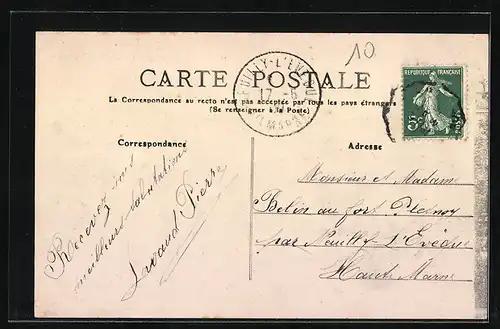 10
NEUILLY-L'EVEQUE
17 -6
CARTE POSTALE
RÉPUBLIQUE FRANÇAISE
5c
POSTES
La Correspondance au recto n'est pas acceptée par tous les pays étrangers
(Se renseigner à la Poste)
Correspondance
Adresse
Recevez mes
meilleures salutations
Pierre
Monsieur et Madame
Belin au fort
par Neuilly L'Evêque
Haute Marne